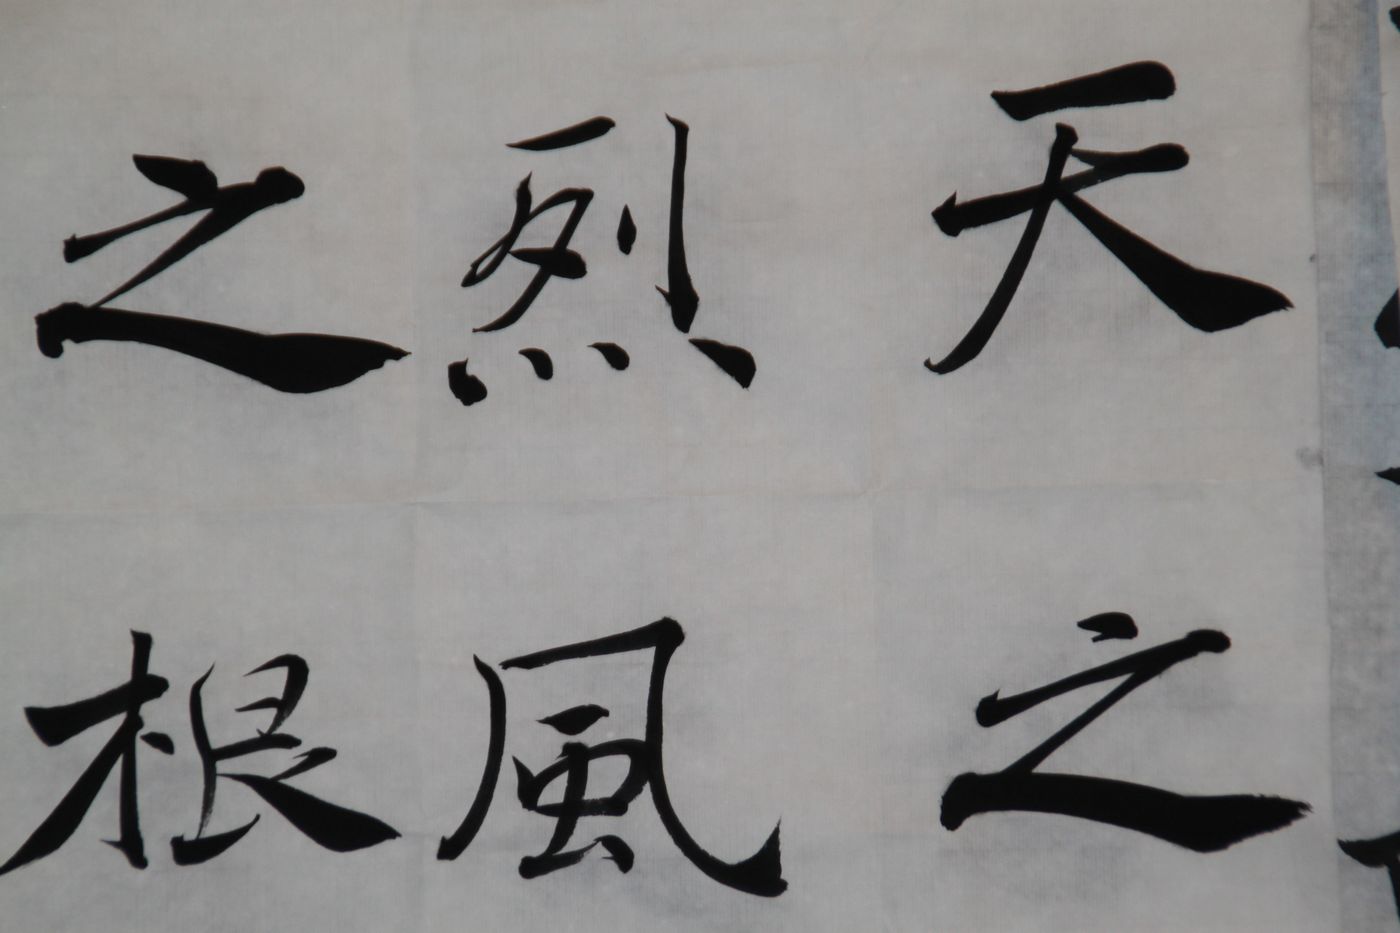 天之
烈風
之根